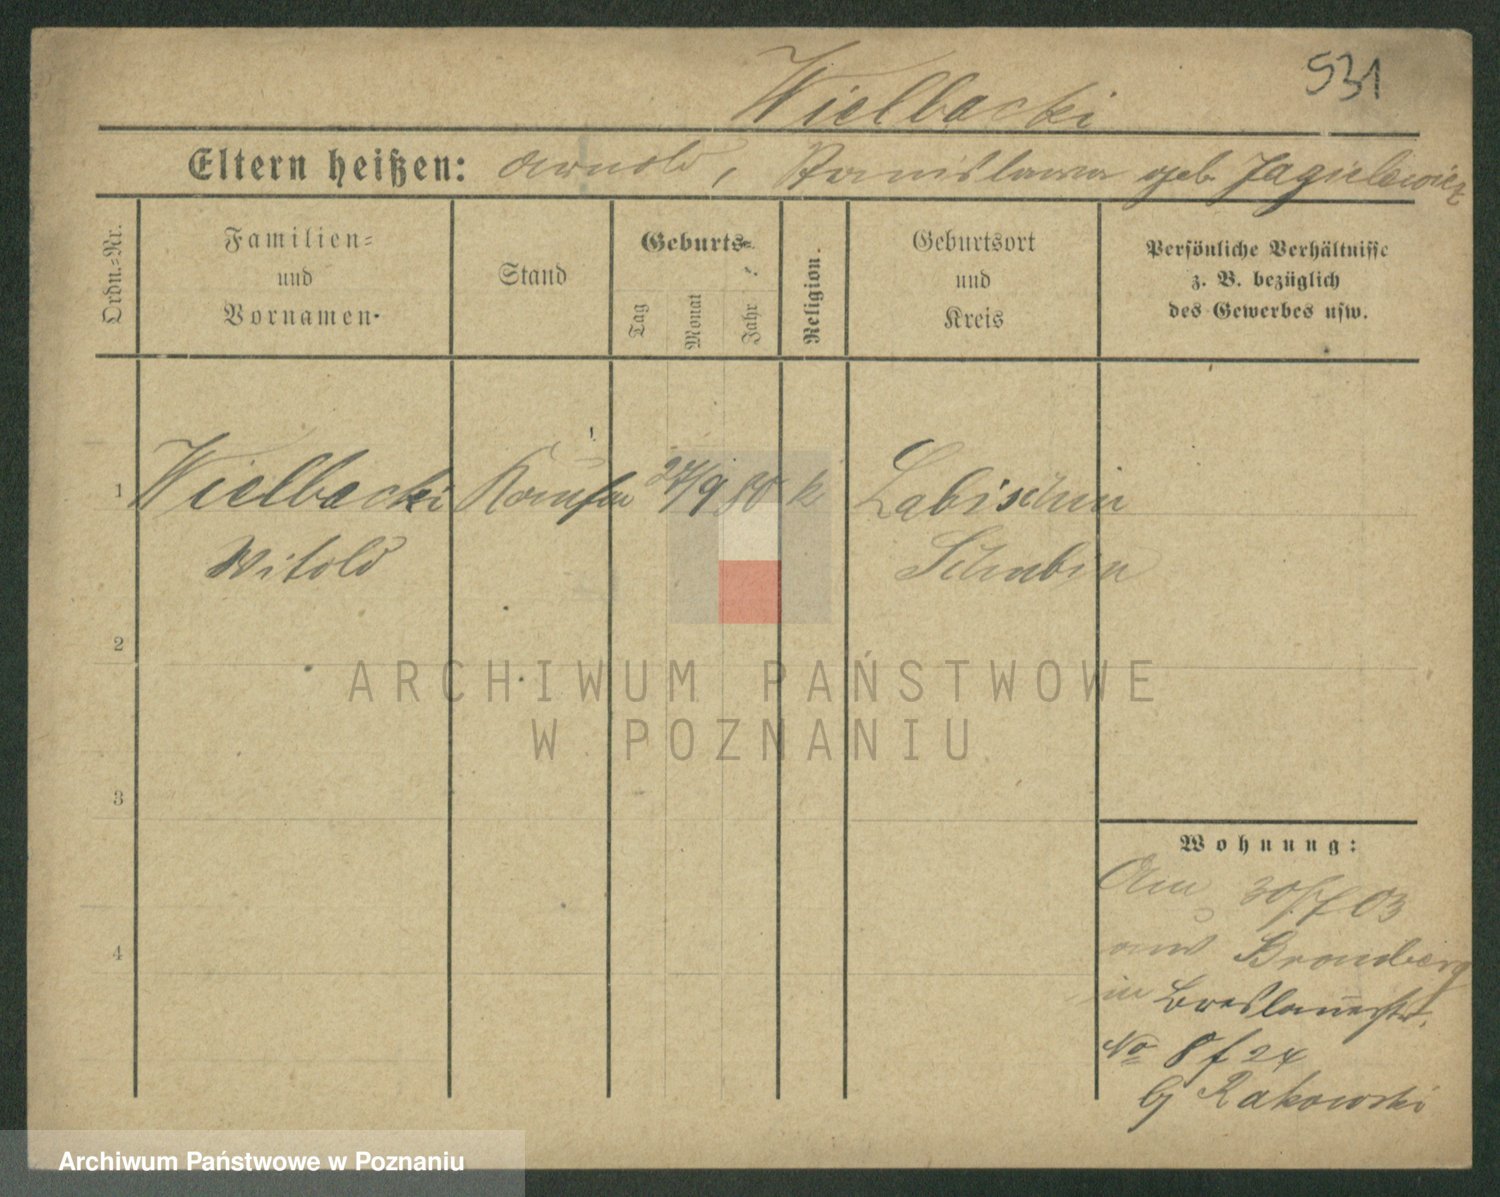 531
Wielbacki
Eltern heißen: Arnold, Stanislawa geb. Jagielewicz
Ordn.-Nr.
Familien-
und
Vornamen
Stand
Geburts-
Tag
Monat
Jahr
Religion.
Geburtsort
und
Kreis
Persönliche Verhältnisse
z. B. bezüglich
des Gewerbes usw.
1 Wielbacki Kaufm 27/9 80 k Labischin
Witold Schubin
2
ARCHIWUM PAŃSTWOWE
W POZNANIU
3
Wohnung:
Am 30/7 03
aus Bromberg
4
in Breslauerstr.
No 8 f 24
bj Rakowski
Archiwum Państwowe w Poznaniu